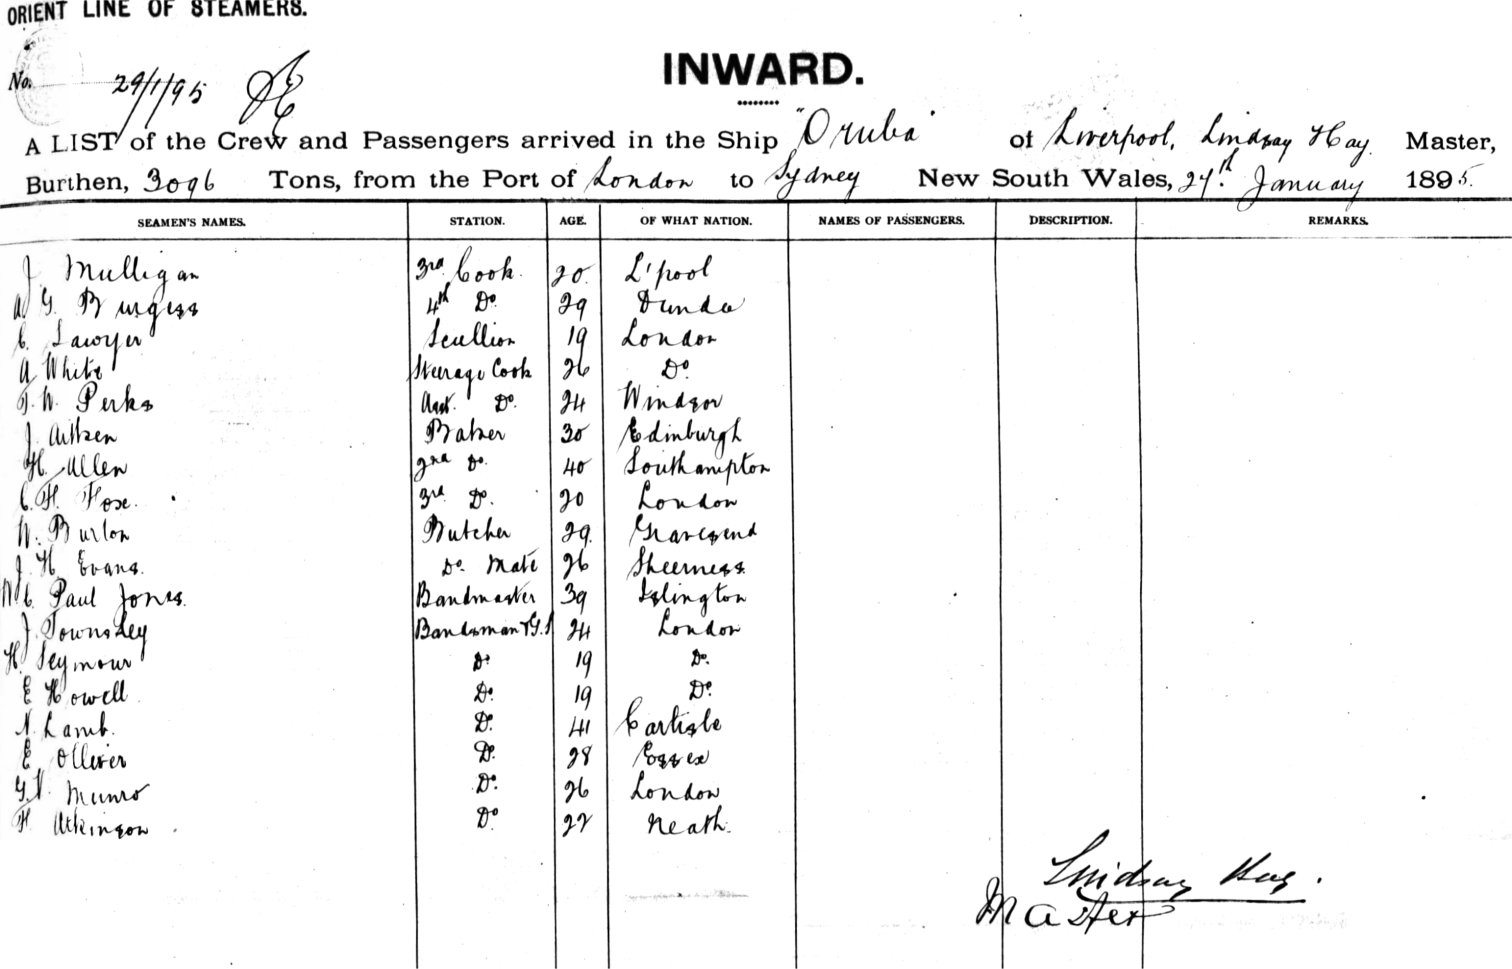 ORIENT LINE OF STEAMERS.
No. 29/1/95
INWARD.
A LIST of the Crew and Passengers arrived in the Ship "Oruba" of Liverpool, Lindsay Hay Master,
Burthen, 3096 Tons, from the Port of London to Sydney New South Wales, 24th January 1895.
SEAMEN'S NAMES. STATION. AGE. OF WHAT NATION. NAMES OF PASSENGERS. DESCRIPTION. REMARKS.
J Mulligan 3rd Cook. 20 L'pool
A G. Burgess 4th Do. 29 Dundee
C. Sawyer Scullion 19 London
A White Steerage Cook 26 Do.
T. W. Perks Asst. Do. 24 Windsor
J. Aitken Baker 30 Edinburgh
H. Allen 2nd Do. 40 Southampton
C. H. Fox. 3rd Do. 20 London
W. Burton Butcher 29. Gravesend
J H Evans. Do. Mate 26 Sheerness
W C. Paul Jones. Bandmaster 39 Islington
J. Townsley Bandsman & G.S 24 London
H. Seymour Do 19 Do.
E Howell Do. 19 Do.
N. Lamb. Do. 41 Carlisle
E Olliver Do. 28 Essex
G. V. Munro Do. 26 London
H. Atkinson Do 22 Neath.
Lindsay Hay.
Master